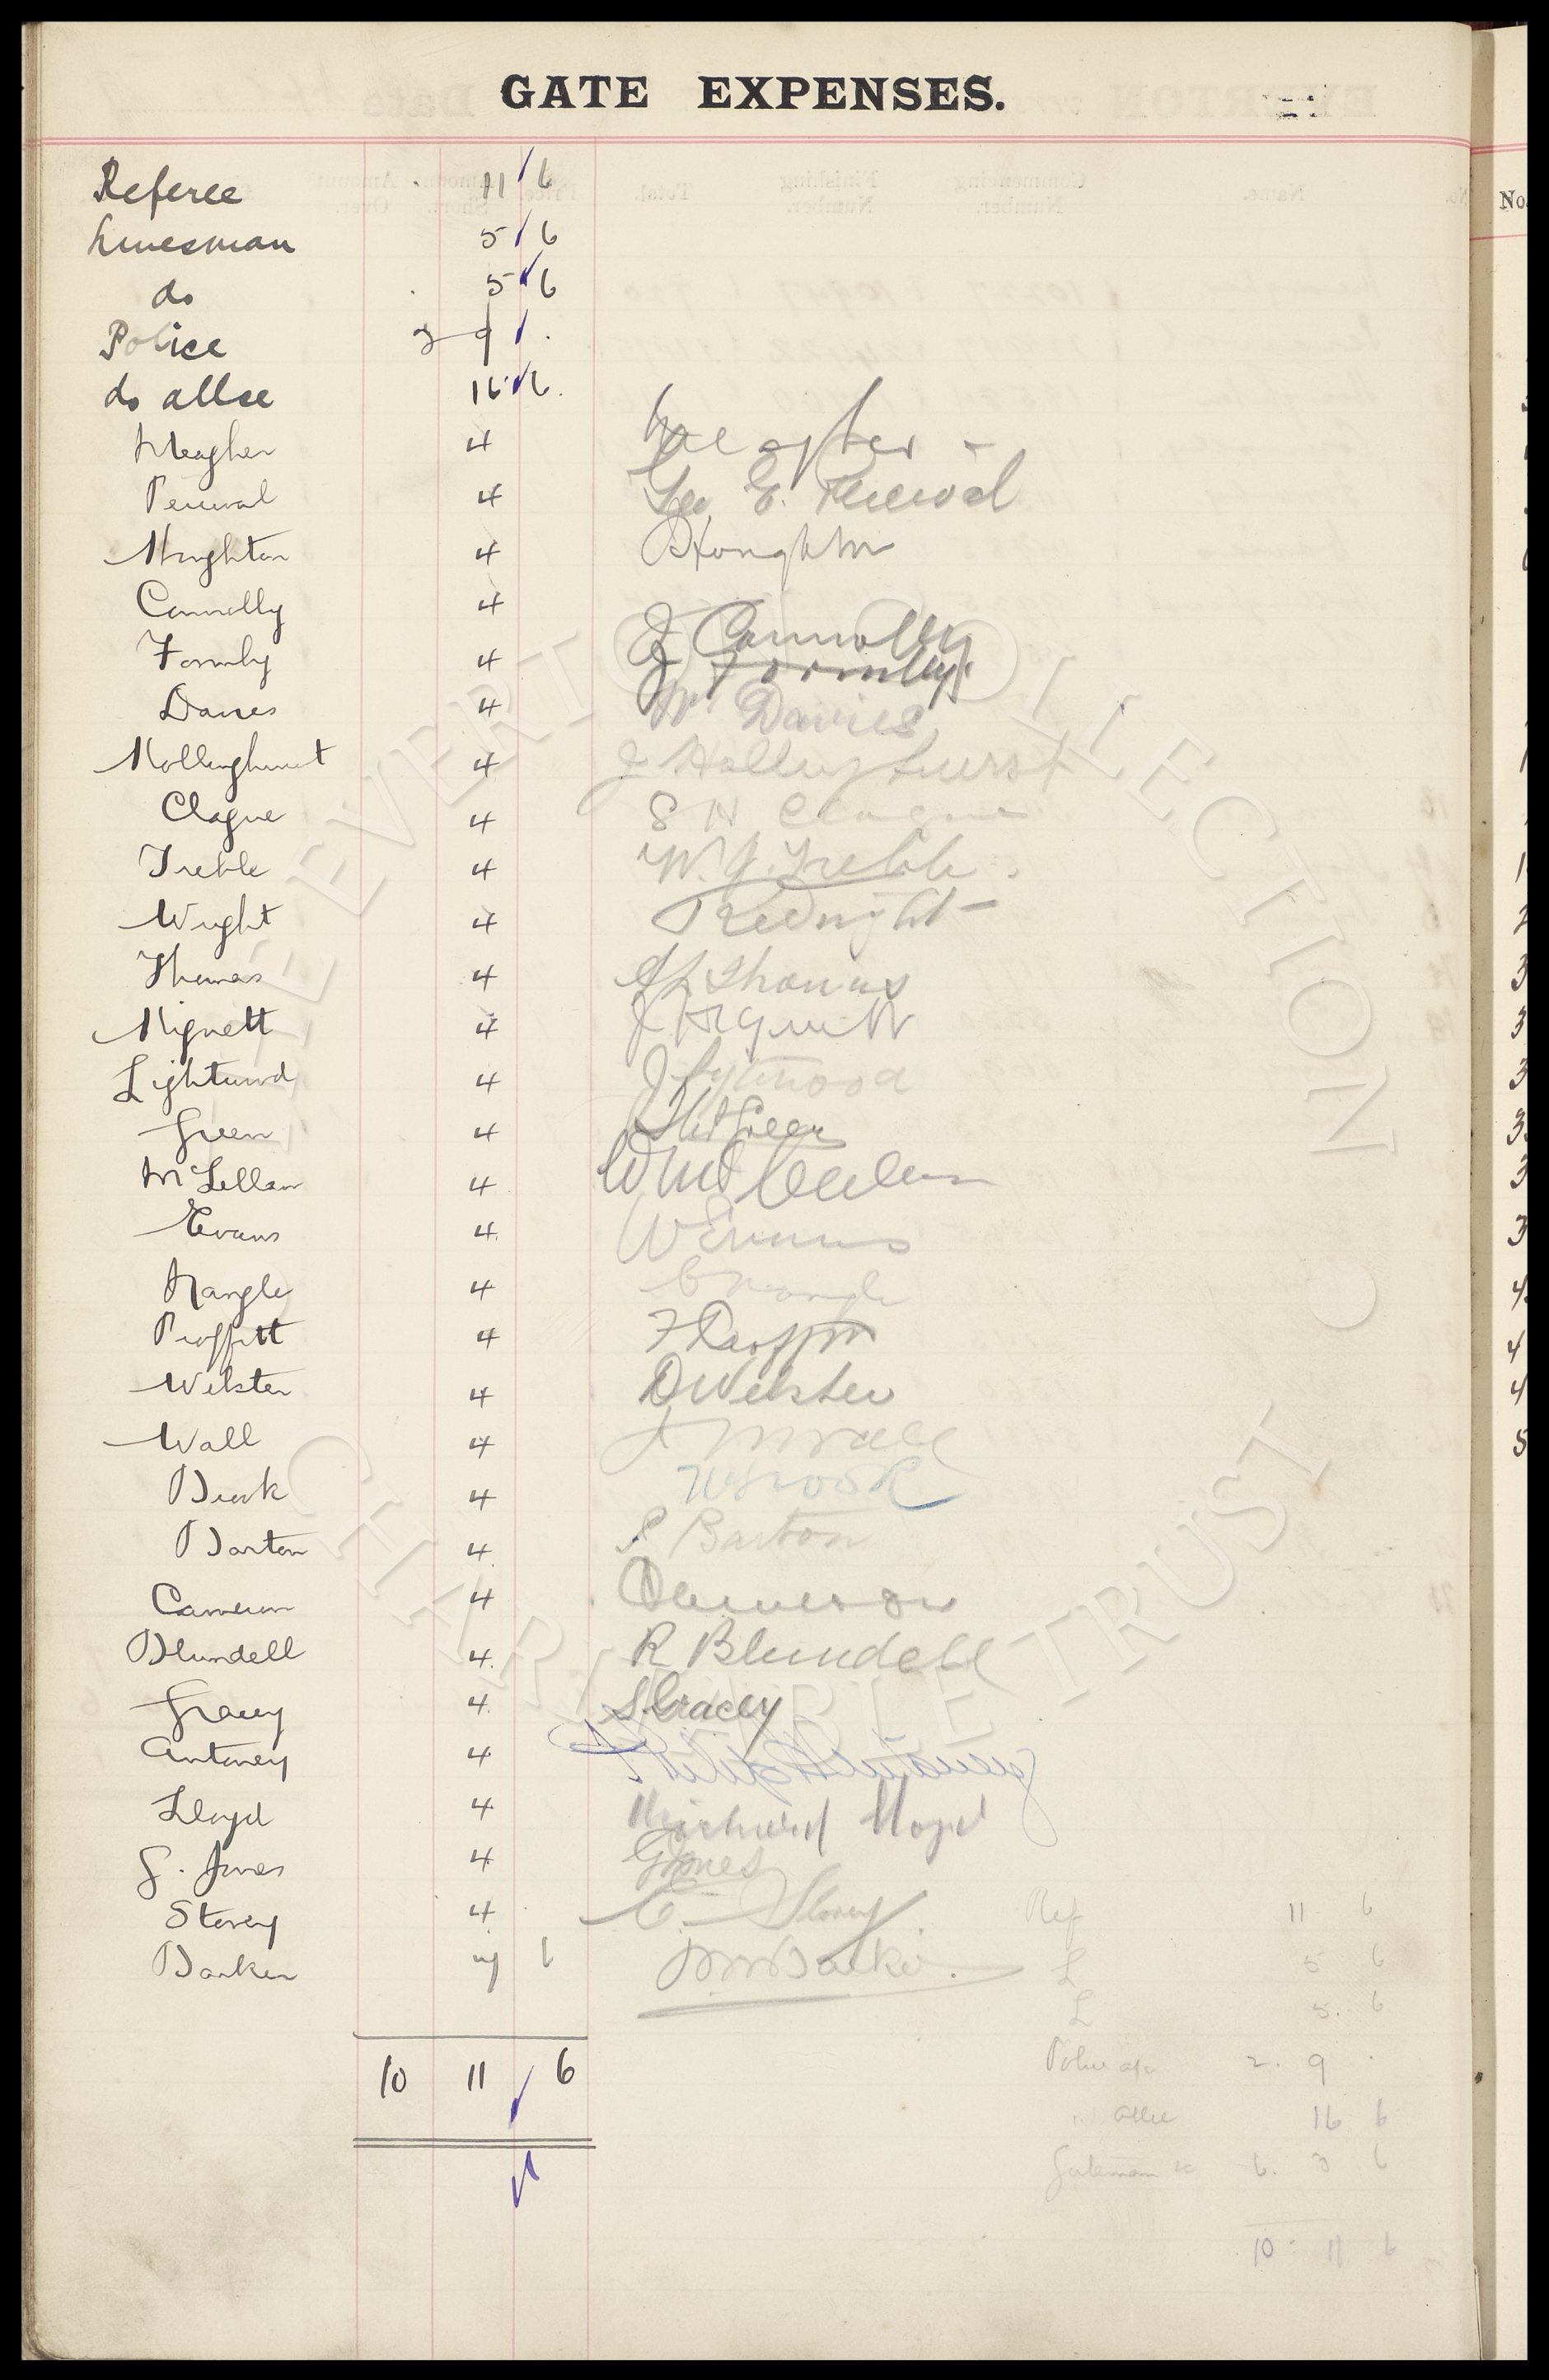 GATE EXPENSES.
Referee 11 6
Linesman 5 6
do 5 6
Police 2 9 .
do allce 16 6.
Meagher 4 Meagher
Percival 4 Geo. E. Percival
Houghton 4 Houghton
Connolly 4 J Connolly
Formby 4 J Formby
Davies 4 W. Davies
Hollinghurst 4 J Hollinghurst
Clague 4 S H Clague
Treble 4 W. J. Treble.
Wright 4 Wright
Thomas 4 Thomas
Hignett 4 J Hignett
Lightwood 4 J Lightwood
Green 4 Green
McLellan 4 McLellan
Evans 4 W Evans
Nangle 4 C Nangle
Proffitt 4 F Proffitt
Webster 4 D Webster
Wall 4 Wall
Brook 4 Brook
Barton 4 Barton
Cameron 4 Cameron
Blundell 4 R Blundell
Gracey 4 S. Gracey
Antoney 4 Philip Antoney
Lloyd 4 Richard Lloyd
G. Jones 4 G Jones
Storey 4 C. Storey
Barker 6 Barker.
10 11 6
Ref 11 6
L 5 6
L 5. 6
Police a/c 2. 9 .
allce 16 6
Gatemen &c 6. 3 6
10 11 6
No.
THE EVERTON COLLECTION CHARITABLE TRUST